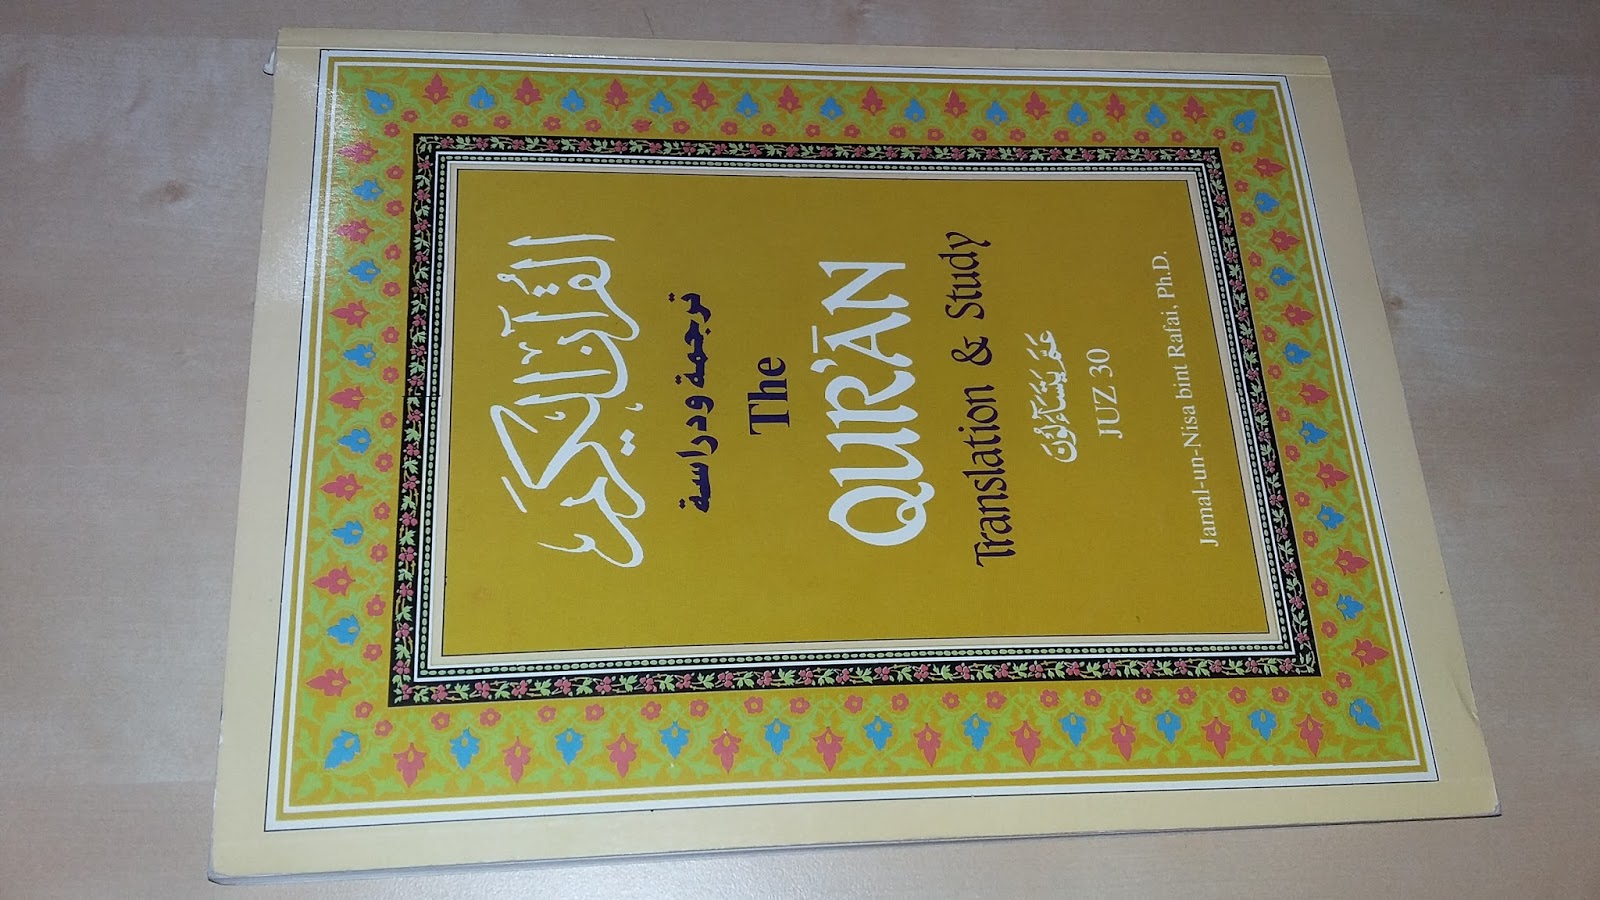 القُرْآنُ الكَرِيم
ترجمة ودراسة
The
QUR'ĀN
Translation & Study
عَمَّ يَتَسَآءَلُونَ
JUZ 30
Jamal-un-Nisa bint Rafai, Ph.D.